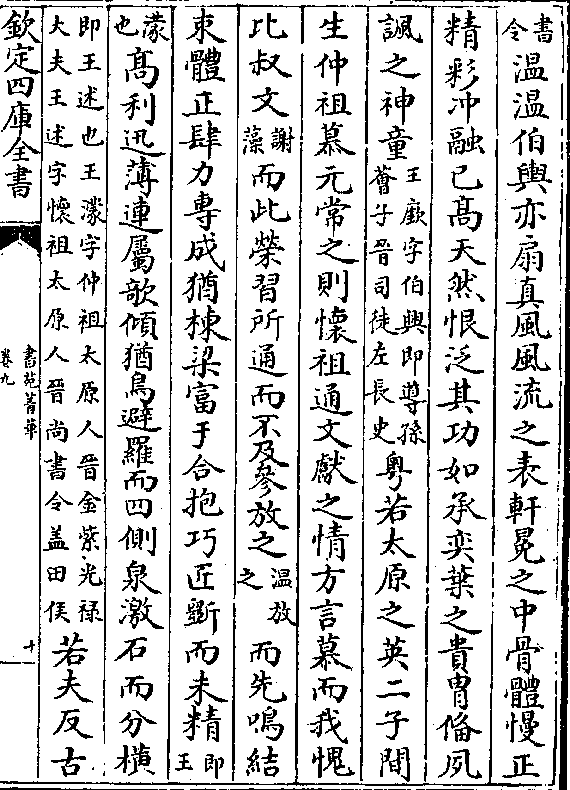 書令溫溫伯輿亦扇真風風流之表軒冕之中骨體慢正
精彩冲融已髙天然恨泛其功如承奕葉之貴胄俻夙
諷之神童王廞字伯輿即導孫薈子晉司徒左長史粤若太原之英二子間
生仲祖慕元常之則懷祖通文獻之情方言慕而我愧
比叔文謝藻而此榮習所通而不及參放之温放之而先鳴結
束體正肆力專成猶棟梁富于合抱巧匠斵而未精即王
濛也髙利迅薄連屬欹傾猶鳥避羅而四側泉激石而分橫
即王述也王濛字仲祖太原人晉金紫光禄大夫王述字懷祖太原人晉尚書令盖田侯若夫反古
欽定四庫全書
書苑菁華
卷九
十